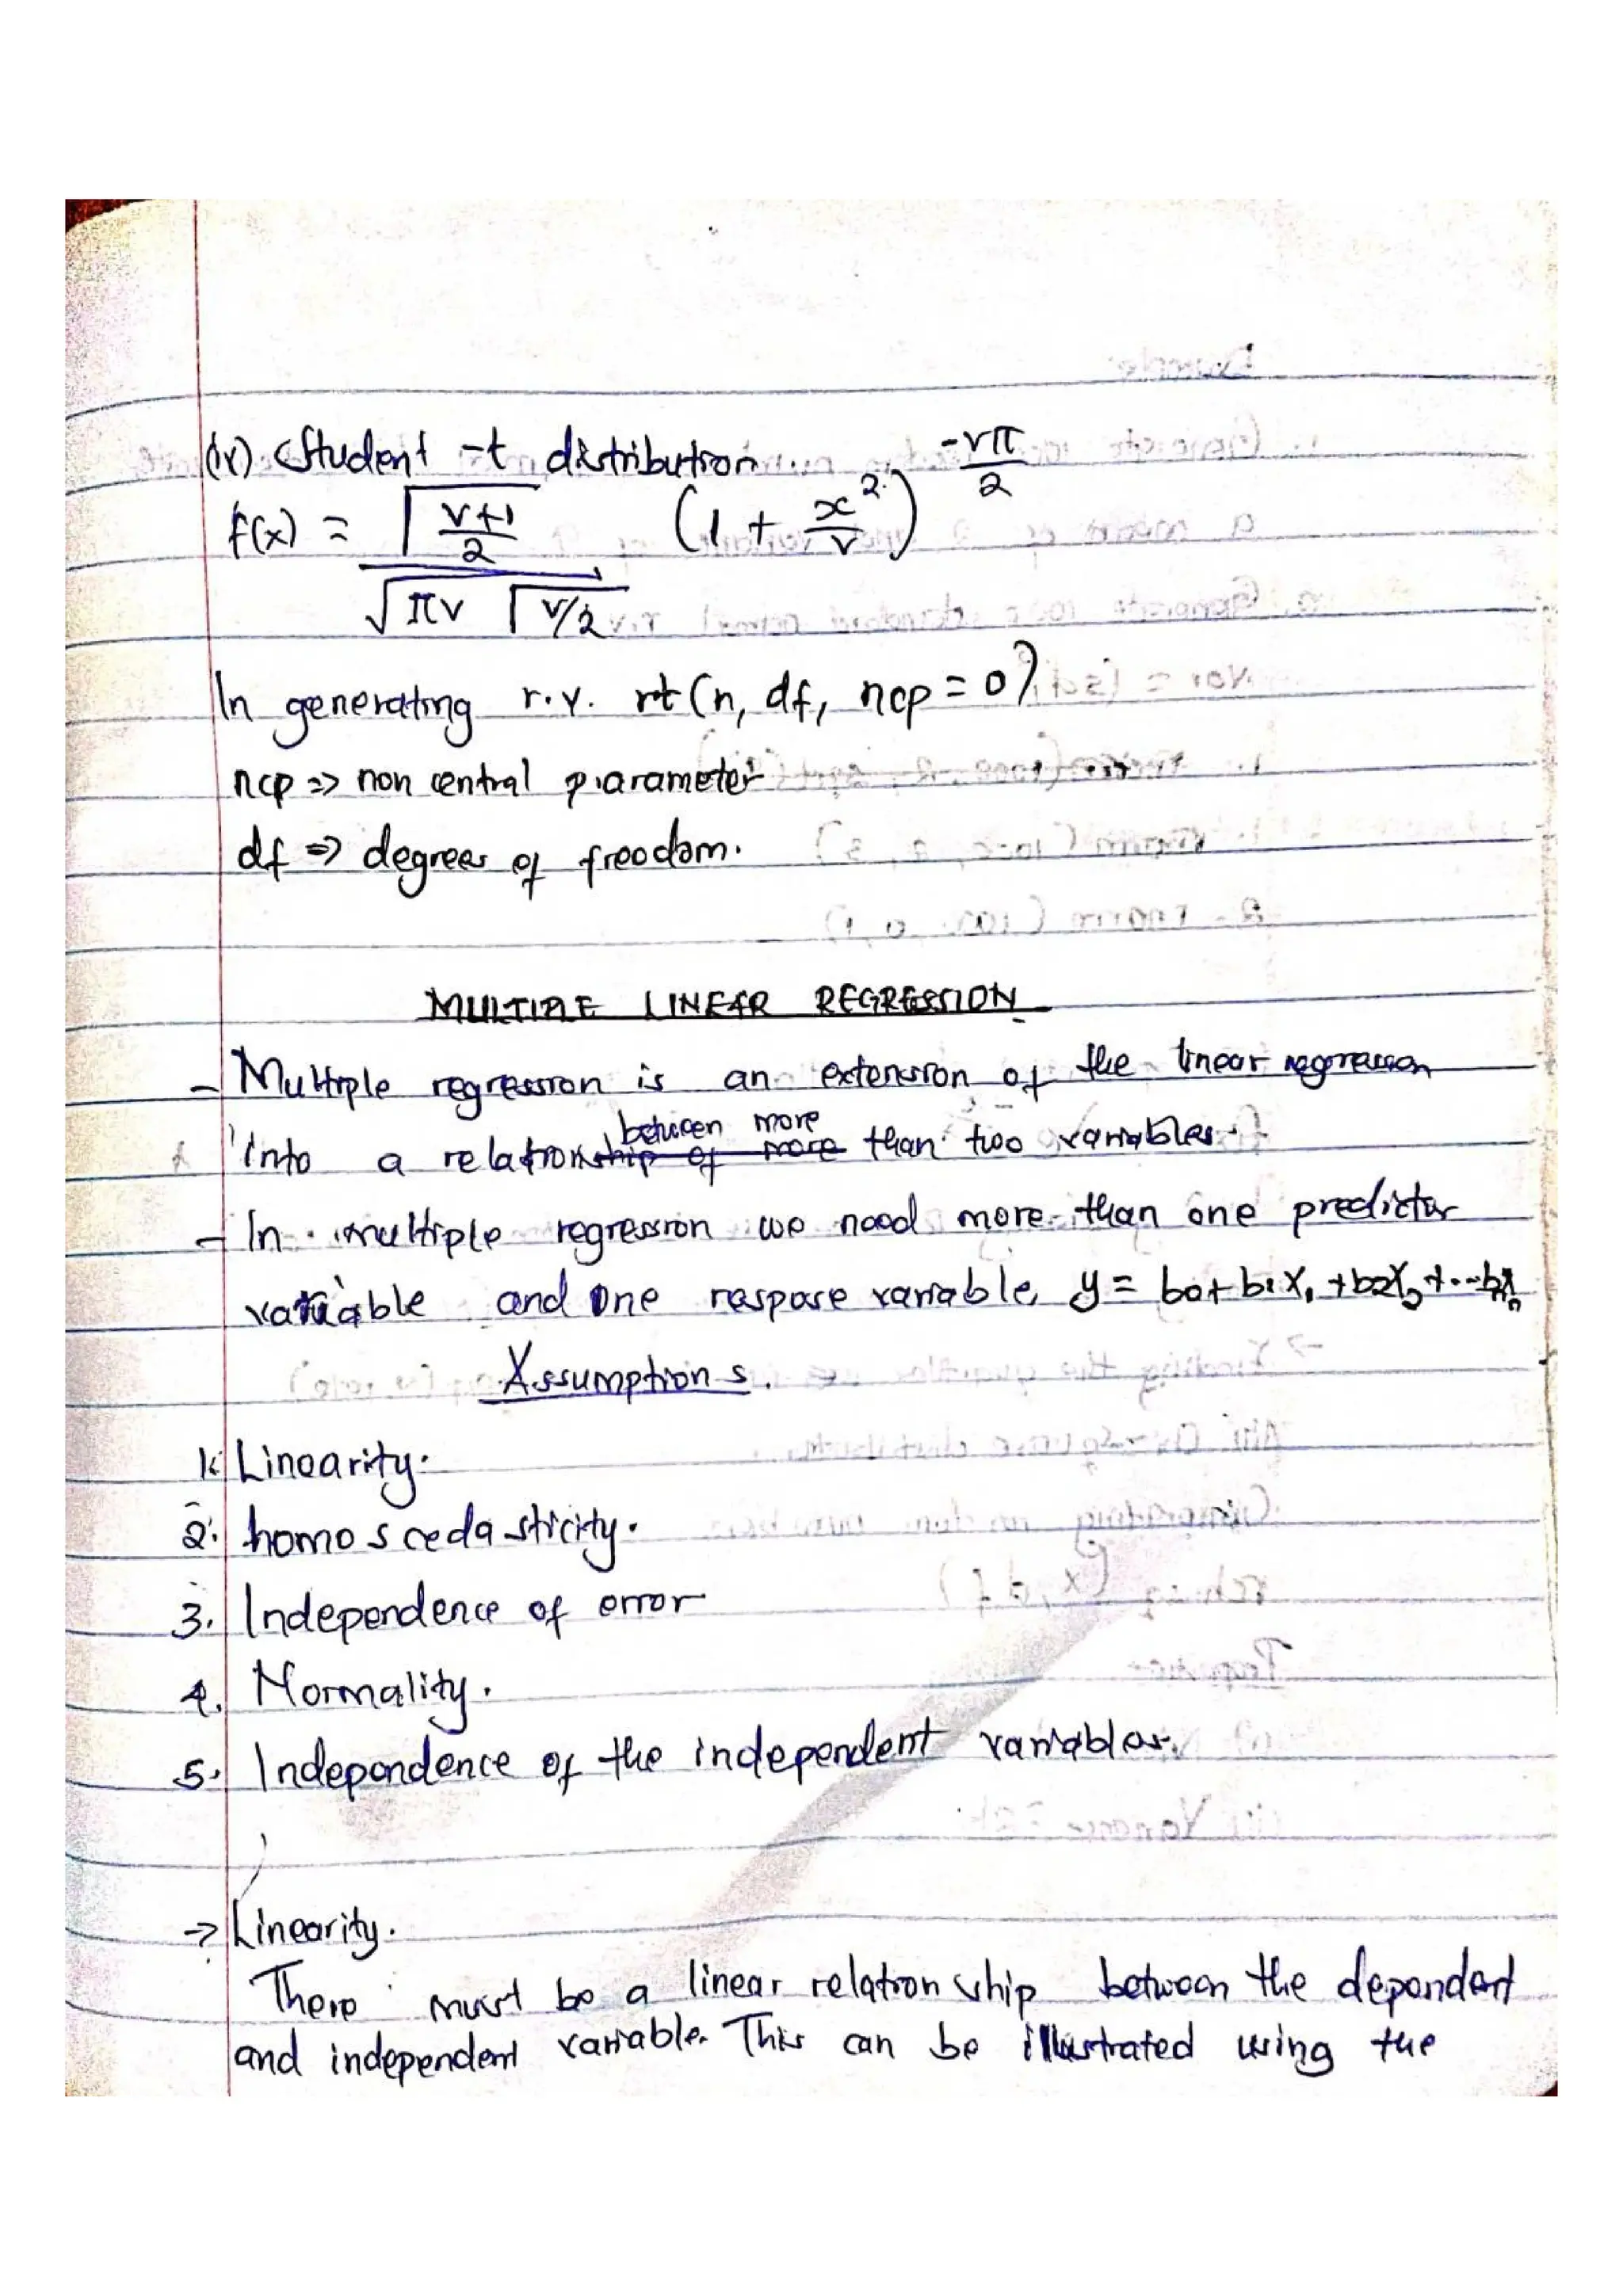 (iv) Student -t distribution
f(x) = Γ v+1/2 / √πv Γ v/2 (1 + x²/v) -vπ/2
In generating r.v. rt (n, df, ncp = 0)
ncp => non central parameter
df => degrees of freedom.
MULTIPLE LINEAR REGRESSION
- Multiple regression is an extension of the linear regression
into a relationship of more between more than two variables.
- In multiple regression we need more than one predictor
variable and one respose variable, y = b0 + b1X1 + b2X2 + ... bnXn
Assumptions.
1. Linearity.
2. homoscedasticity.
3. Independence of error
4. Normality.
5. Independence of the independent variables.
-> Linearity.
There must be a linear relationship between the dependent
and independent variable. This can be illustrated using the